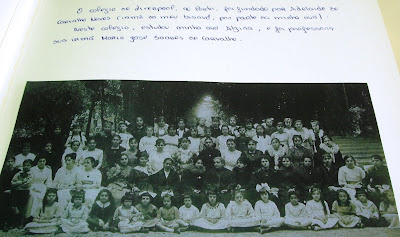 O colégio de Direcport, no Porto, foi fundado por Adelaide de
Carvalho Neves (irmã do meu bisavô, por parte da minha avó)
Neste colégio, estudou minha avó Alzira, e foi professora
sua irmã Maria José Soares de Carvalho.